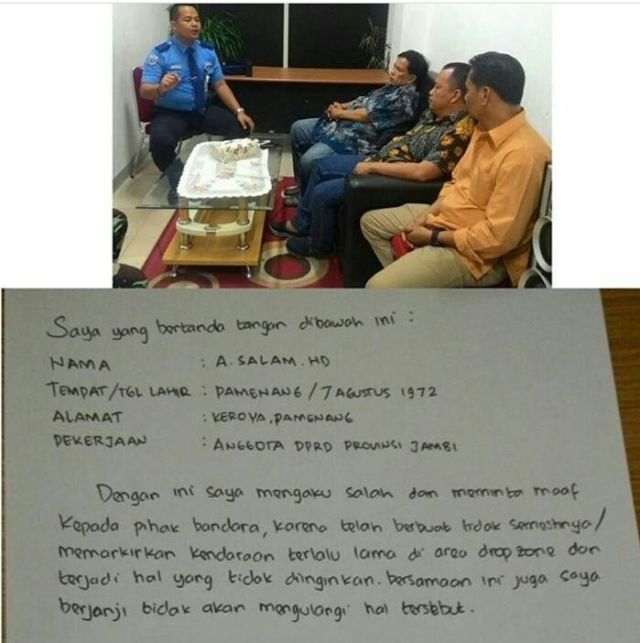 Saya yang bertanda tangan dibawah ini :
NAMA : A. SALAM. HD
TEMPAT/TGL LAHIR : PAMENANG / 7 AGUSTUS 1972
ALAMAT : KEROYA, PAMENANG
PEKERJAAN : ANGGOTA DPRD PROVINSI JAMBI
Dengan ini saya mengaku salah dan meminta maaf
kepada pihak bandara, karena telah berbuat tidak semestinya/
memarkirkan kendaraan terlalu lama di area drop zone dan
terjadi hal yang tidak diinginkan. bersamaan ini juga saya
berjanji tidak akan mengulangi hal tersebut.